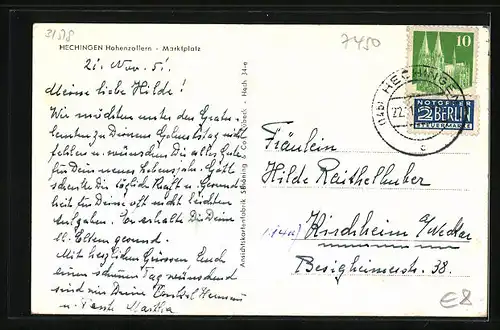 31518
7450
HECHINGEN Hohenzollern - Marktplatz
21. Nov. 51.
Meine liebe Hilde!
Wir möchten unter den Gratu-
lanten zu Deinem Geburtstag nicht
fehlen u. wünschen Dir alles Gute
für Dein neues Lebensjahr. Gott
schenke Dir täglich Kraft u. Gesund-
heit für Deine oft nicht leichten
Aufgaben. Er erhalte Dir Deine
lb. Eltern gesund.
Mit herzlichen Grüssen Euch
einen schönen Tag wünschend
sind wir Deine Onkel Hermann
u. Tante Martha
Ansichtskartenfabrik Schöning & Co., Lübeck · Hech 34-e
10
HECHINGEN
22.
c
NOTOPFER
2 BERLIN
STEUERMARKE
Fräulein
Hilde Raithelhuber
Kirchheim a/Neckar
Besigheimerstr. 38.
€8